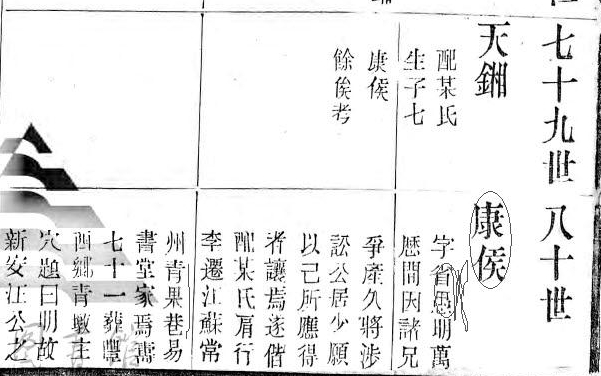 七十九世
八十世
天
配某氏
生子七
康侯
餘俟考
康侯
字省愚明萬
厯間因諸兄
爭產久將涉
訟公居少願
以己所應得
者讓焉遂偕
配某氏肩行
李遷江蘇常
州青果巷易
書堂家焉壽
七十一葬豐
西鄉青墩主
穴題曰明故
新安江公之